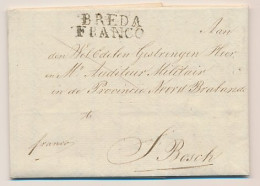 BREDA
FRANCO
Aan
den Wel Edelen Gestrengen Heer
en Mr. Auditeur Militair
in de Provincie Noord Braband
te
franco
S Bosch